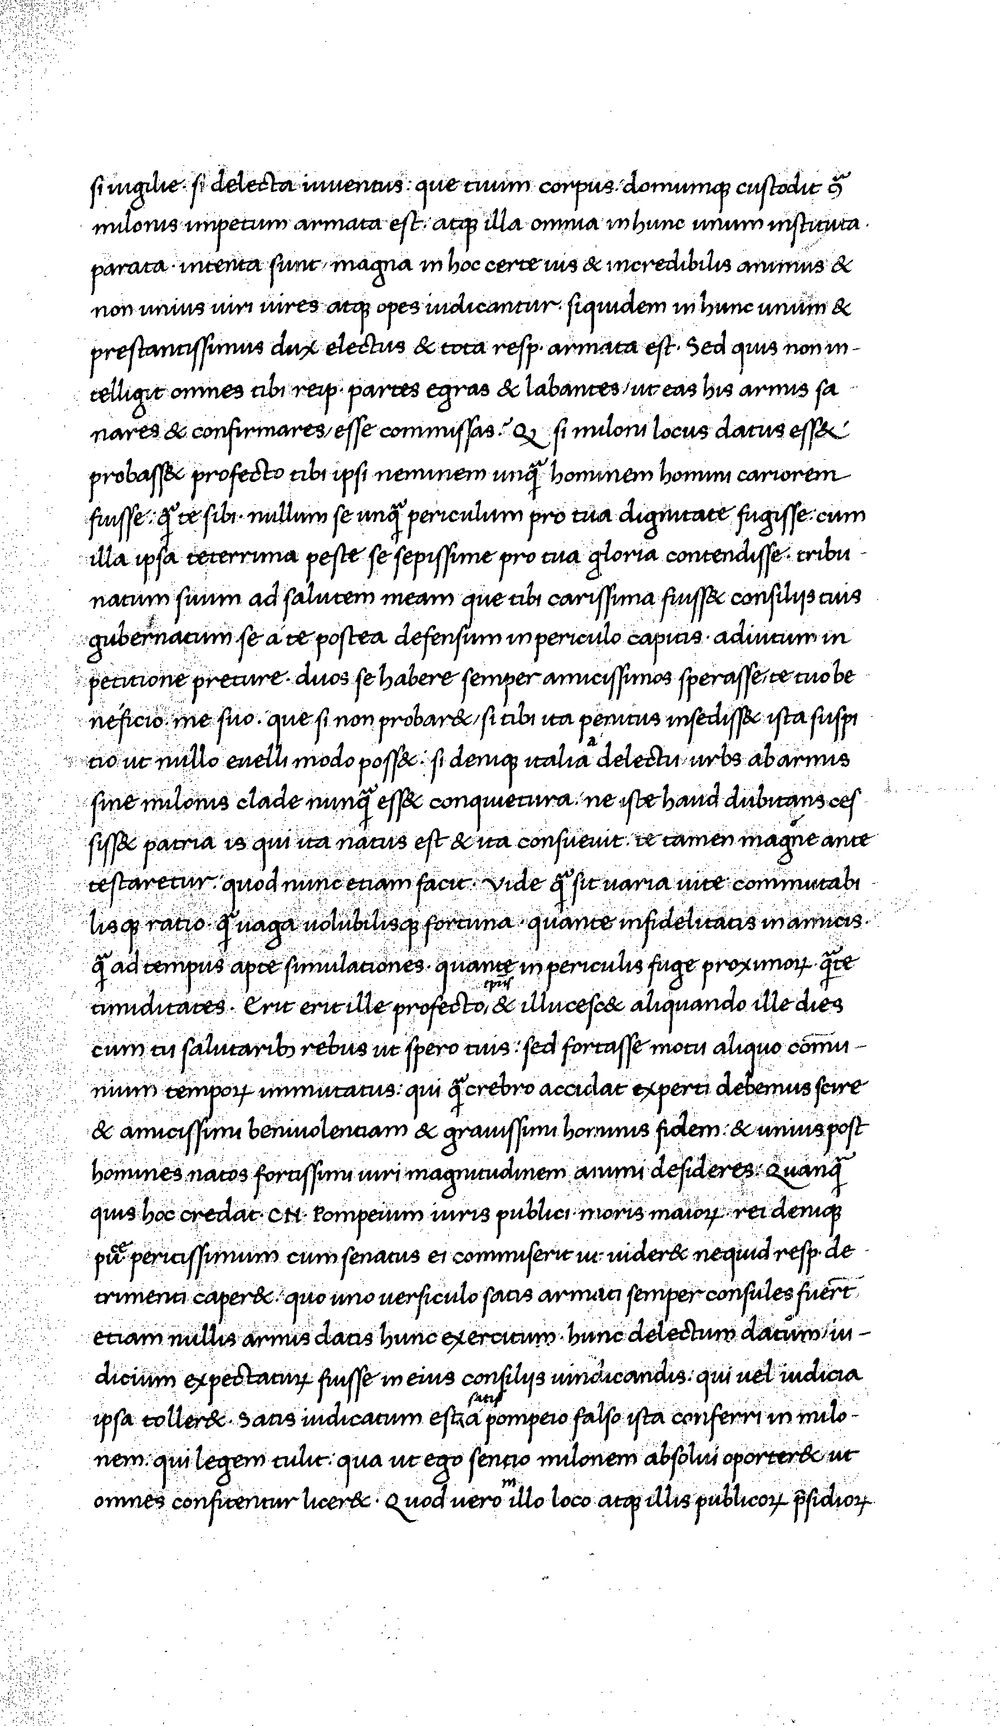 si uigilie. si delecta iuuentus: que tuum corpus. domumq; custodit g̃
milonis impetum armata est. atq; illa omnia in hunc unum instituta.
parata. intenta sunt, magna in hoc certe uis & incredibilis animus &
non unius uiri uires atq; opes iudicantur. siquidem in hunc unum &
prestantissimus dux electus & tota resp. armata est. Sed quis non in-
telligit omnes tibi reip. partes egras & labantes, ut eas his armis sa
nares & confirmares, esse commissas: Q si miloni locus datus ess&:
probass& profecto tibi ipsi neminem unq̃ hominem homini cariorem
fuisse: q̃ te sibi. nullum se unq̃ periculum pro tua dignitate fugisse: cum
illa ipsa teterrima peste se sepissime pro tua gloria contendisse. tribu-
natum suum ad salutem meam que tibi carissima fuiss& consilijs tuis
gubernatum se a te postea defensum in periculo capitis. adiutum in
petitione preture. duos se habere semper amicissimos sperasse, te tuo be
neficio. me suo. que si non probar&, si tibi ita penitus insediss& ista suspi
tio ut nullo euelli modo poss&: si deniq; italia a delectu, urbs ab armis
sine milonis clade nunq̃ ess& conquietura. ne iste haud dubitans ces
siss& patria is qui ita natus est & ita consueuit. te tamen magne ante
testaretur. quod nunc etiam facit. Vide q̃ sit uaria uite commutabi
lisq; ratio. q̃ uaga uolubilisq; fortuna. quante infidelitatis in amicis.
q̃ ad tempus apte simulationes. quante in periculis fuge proximoꝝ. q̃te
timiditates. Erit erit ille profecto, & illucesc& aliquando ille dies
cum tu salutarib; rebus ut spero tuis: sed fortasse motu aliquo com̄u-
nium tempoꝝ immutatus: qui q̃ crebro accidat experti debemus scire
& amicissimi beniuolentiam & grauissimi hominis fidem: & unius post
homines natos fortissimi uiri magnitudinem animi desideres. Quanq̃
quis hoc credat. CN. Pompeium iuris publici. moris maioꝝ. rei deniq;
pu᷑ce peritissimum cum senatus ei commiserit ut uider& nequid resp. de
trimenti caper&. quo uno uersiculo satis armati semper consules fuer̄t,
etiam nullis armis datis hunc exercitum. hunc delectum datum, iu-
dicium expectatuꝝ fuisse in eius consilijs uindicandis: qui uel iudicia
ipsa toller&. Satis iudicatum est satis a pompeio falso ista conferri in milo-
nem: qui legem tulit: qua ut ego sentio milonem absolui oporter& ut
omnes confitentur licer&. Quod uero in illo loco atq; illis publicoꝝ p̄sidioꝝ